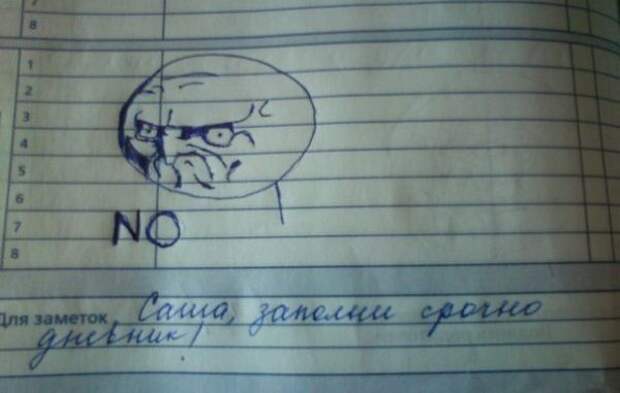 8
1
2
3
4
5
6
7
8
NO
Для заметок Саша, заполни срочно
дневник!